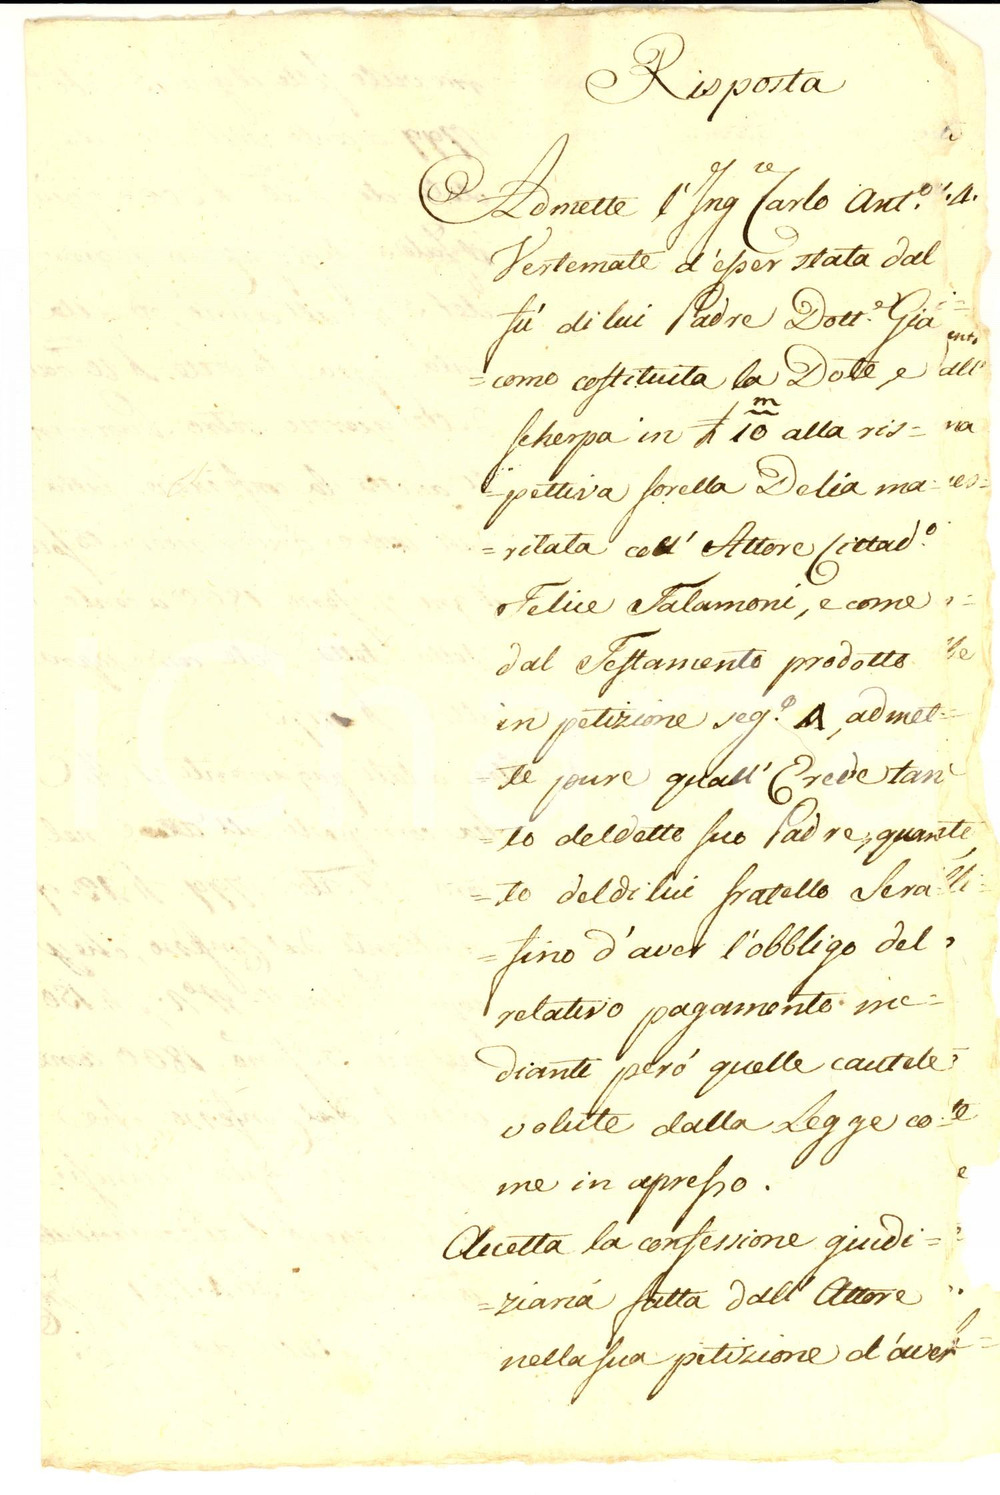 Risposta
Admette l'Ing.re Carlo Ant.o
Vertemate d'esser stata dal
fù di lui Padre Dott.e Gia
=como costituita la Dote, e
scherpa in £ 10 m alla ris=
=pettiva sorella Delia ma=
=ritata coll' Attore Cittad.o
Felice Talamoni, e come
dal Testamento prodotto
in petizione seg.o A, admet=
=te pure quall' Erede tan
=to del detto suo Padre, quan
=to del di lui fratello Sera
=fino d'aver l'obbligo del
relativo pagamento me=
diante peró quelle cautele
volute dalla Legge co=
me in apresso.
Accetta la confessione giudi=
=ziaria fatta dall' Attore
nella sua petizione d'aver